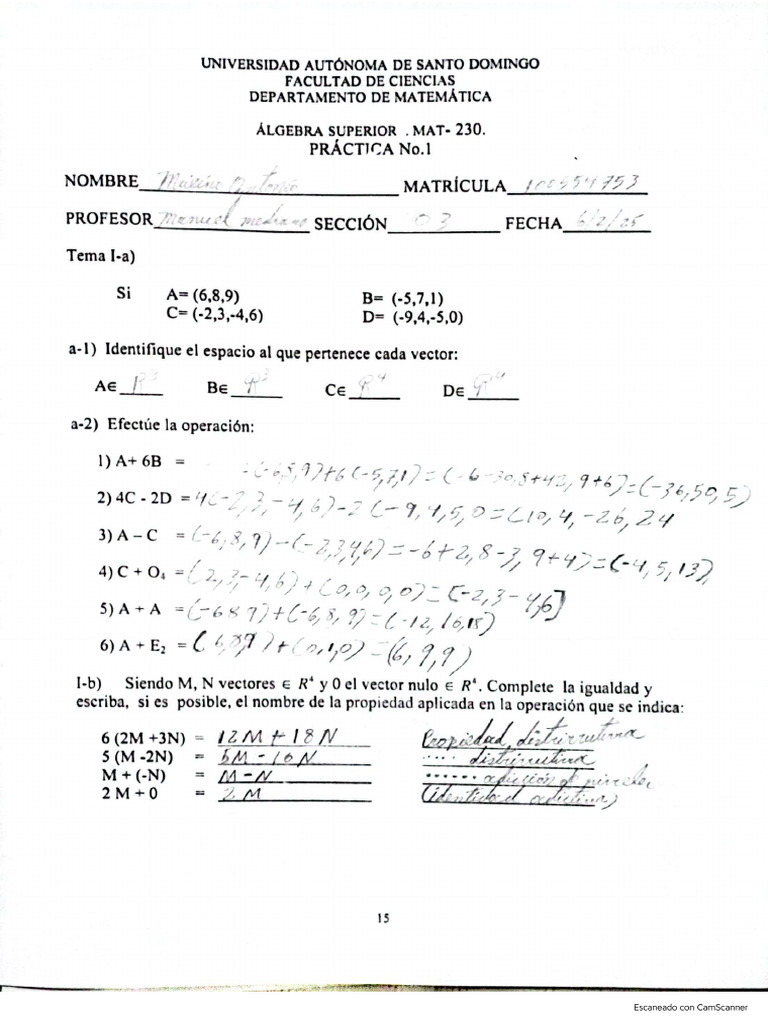 UNIVERSIDAD AUTÓNOMA DE SANTO DOMINGO
FACULTAD DE CIENCIAS
DEPARTAMENTO DE MATEMÁTICA
ÁLGEBRA SUPERIOR . MAT- 230.
PRÁCTICA No.1
NOMBRE MATRÍCULA 100554753
PROFESOR Manuel medrano SECCIÓN 03 FECHA 6/2/25
Tema I-a)
Si A= (6,8,9) B= (-5,7,1)
C= (-2,3,-4,6) D= (-9,4,-5,0)
a-1) Identifique el espacio al que pertenece cada vector:
A∈ R³ B∈ R³ C∈ R⁴ D∈ R⁴
a-2) Efectúe la operación:
1) A+ 6B = =(-6,8,9)+6(-5,7,1)=(-6-30,8+42,9+6)=(-36,50,5)
2) 4C - 2D = 4(-2,3,-4,6)-2(-9,4,5,0=(10,4,-26,24
3) A – C = (-6,8,9)-(-2,3,4,6)=-6+2,8-3,9+4)=(-4,5,13),
4) C + O₄ = (2,3,-4,6)+(0,0,0,0)=[-2,3-4,6]
5) A + A = (-689)+(-6,8,9)=(-12,16,18)
6) A + E₂ = (6,8,9)+(0,1,0)=(6,9,9)
I-b) Siendo M, N vectores ∈ R⁴ y 0 el vector nulo ∈ R⁴. Complete la igualdad y
escriba, si es posible, el nombre de la propiedad aplicada en la operación que se indica:
6 (2M +3N) = 12M + 18N Propiedad distrirutiva
5 (M -2N) = 5M - 10N .... distrirutiva
M + (-N) = M-N ...... adición de
2 M + 0 = 2M (identidad aditiva)
15
Escaneado con CamScanner